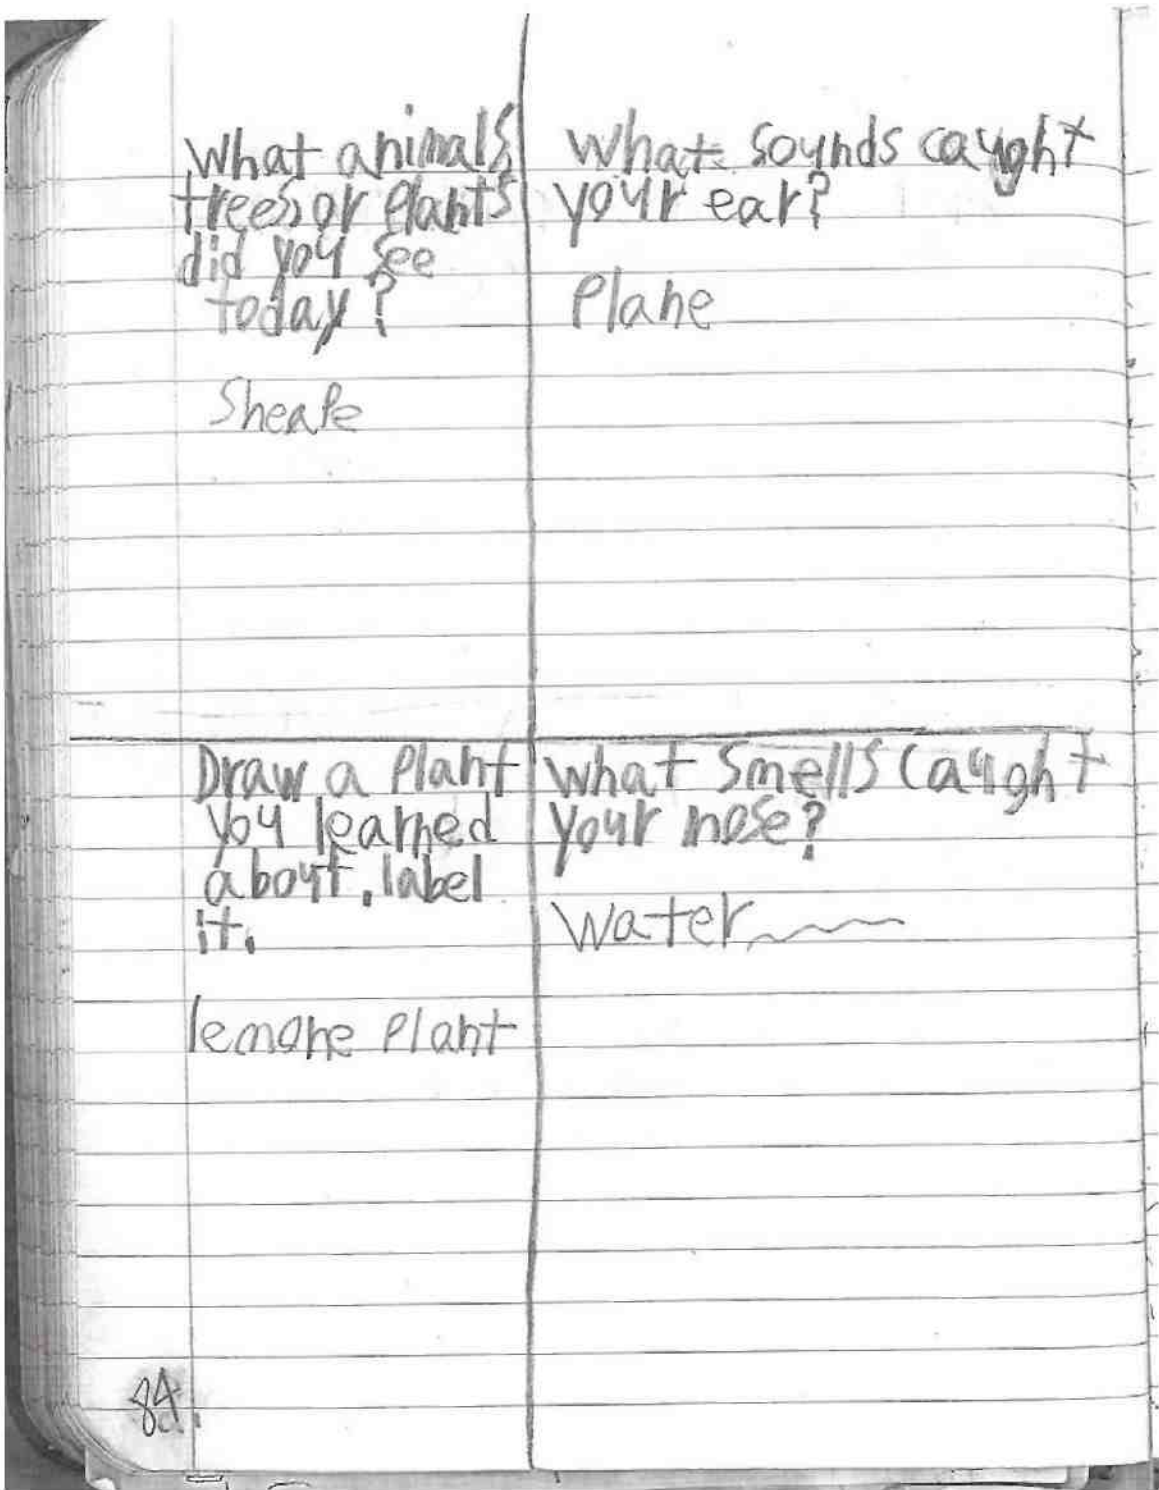 What animals,
trees, or Plants
did you see
today?
Sheape
What sounds caught
your ear?
Plane
Draw a Plant
you learned
about. label
it.
lemone Plant
What smells caught
your nose?
Water
84